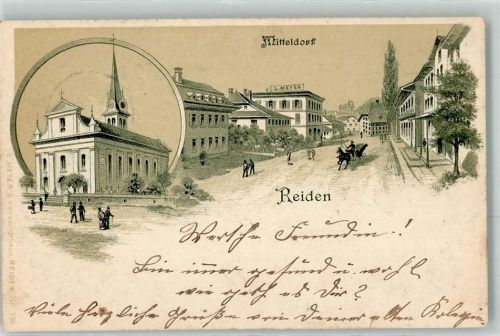 Mitteldorf
L. MEYER
Reiden
Werthe Freundin!
Bin imer gesund u. wohl
wie geht es Dir?
Viele herzliche Grüße von Deiner alten Kollegin